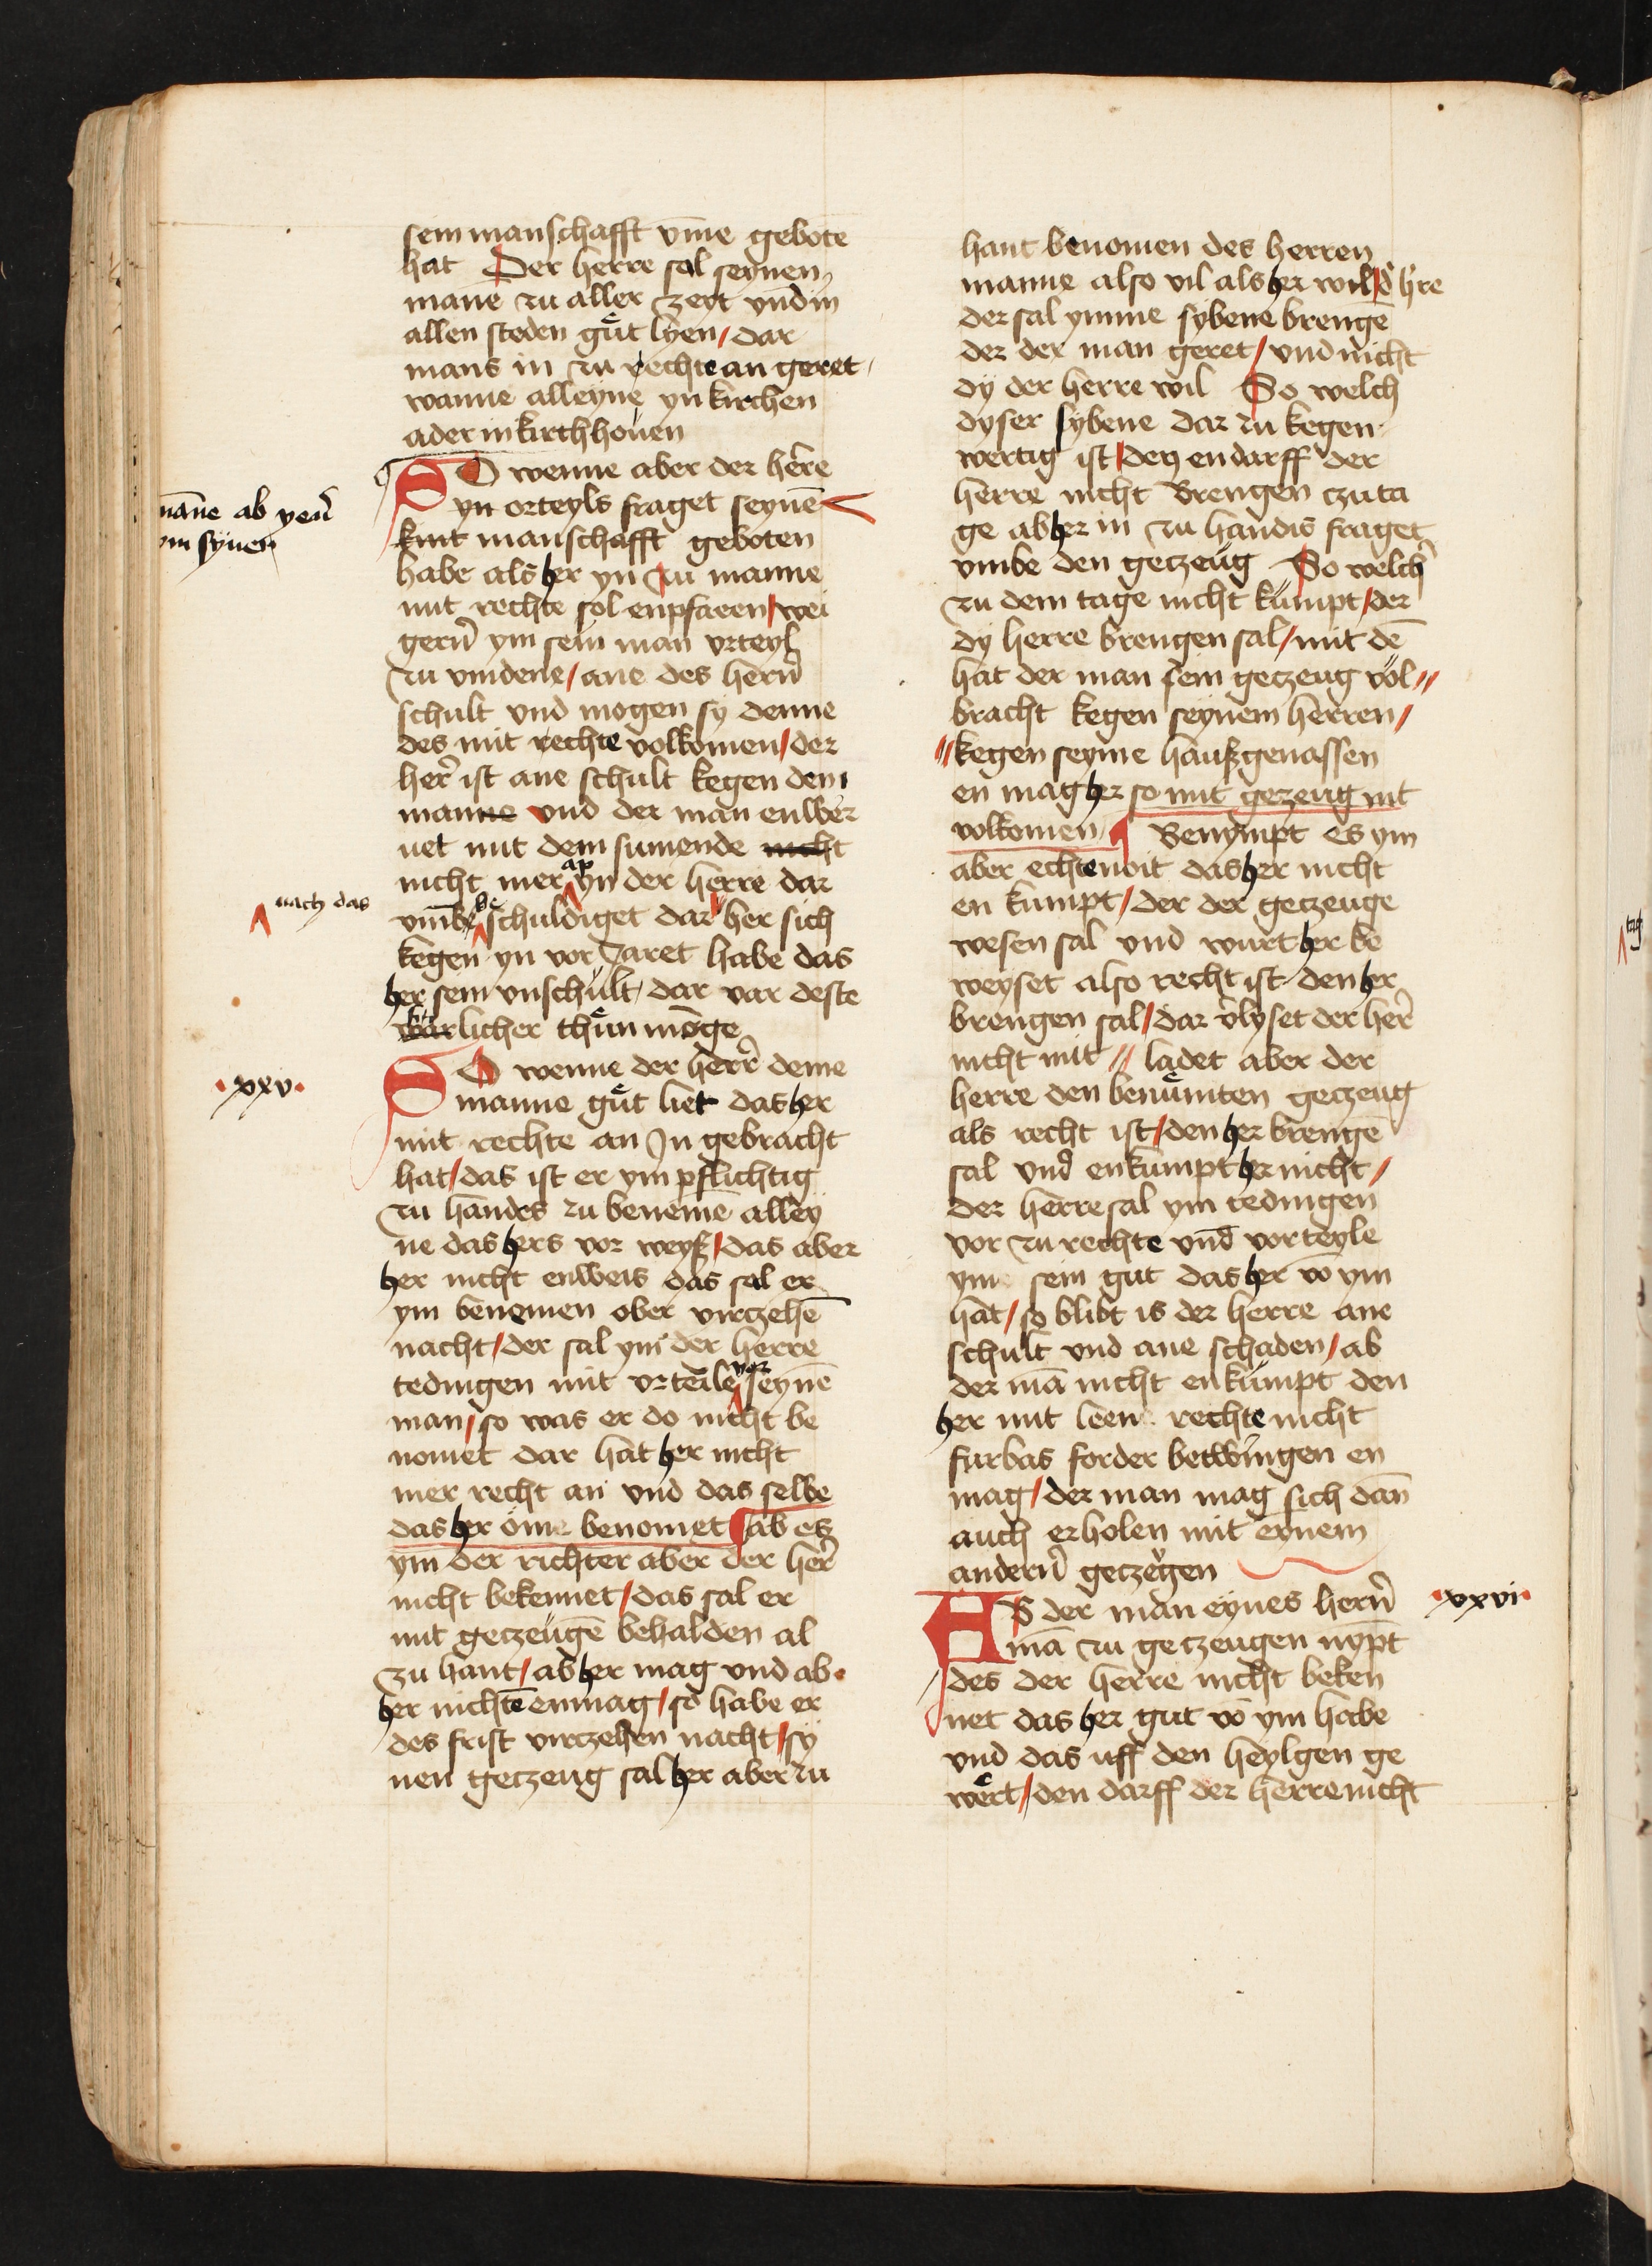 sein manschafft vm̄e gebote
hat Der herre sal seynen
mane zu aller zeyt vnd in
allen steden gůt lyen / dar
mans in zu rechte an geret
wanne alleyne yn kirchen
ader in kirchhouen
SO wenne aber der herre
yn orteyls fraget seynē
kint manschafft geboten
habe als her yn zu manne
mit rechte sol enpfaen / wei
gern̄ ym sein man vrteyl
zu vindene / ane des hern̄
schult vnd mogen sy denne
des mit rechte volkomen / der
her̄ ist ane schult kegen dem
manne vnd der man enwer
uet mit dem sumende nicht
nicht mer ap yn der herre dar
vmbe beschuldiget dar her sich
kegen yn vor zaret habe das
her sein vnschult dar var deste
barlicher thůn moge
SO wenne der herr̄ deme
manne gůt liet das her
mit rechte an In gebracht
hat / das ist er ym pflichtig
zu handes zu beneme alley
ne das hers vor weyß / das aber
her nicht enweis das sal er
ym benemen ober virczehē
nacht / der sal ym der herre
tedingen mit vrteile vor seynē
man / so was er do nicht be
nomet dar hat her nicht
mer recht an vnd das selbe
das her ome benomet ab es
ym der richter aber der her̄
nicht bekennet / das sal er
mit geczeugē behalden al
zu hant / ab her mag vnd ab
her nichte enmag / so habe er
des frist virczehen nacht / sy
nen geczeug sal her aber zu
nāne ab yen̄
ym synen
nach das
xxv
hant benomen des herren
manne also vil als her wil / d' h're
der sal ymme sybene brengē
der der man geret / vnd nicht
dy der herre wil So welch
dyser sybene dar zu kegen
wertig ist / den en darff der
herre nicht Brengen czu ta
ge ab her in zu handis fraget
vmbe den geczeug So welch'
zu dem tage nicht kumpt / der
dy herre brengen sal / mit dē
hat der man sein geczeug vol //
bracht kegen seynem herren /
// kegen seyme haußgenassen
en mag her so mit gezeug nit
volkomen Benympt es ym
aber echte noit das her nicht
en kumpt / der der geczeuge
wesen sal vnd wurt her be
weyset also recht ist den her
brengen sal / dar v'lyset der her̄
nicht mit // ladet aber der
herre den benůmten geczeug
als recht ist / den her brengē
sal vnd enkumpt her nicht /
der herre sal ym tedingen
vor zu rechte vnd vorteyle
yme sein gut das her vō ym
hat / so blibt is der herre ane
schult vnd ane schaden / ab
der mā nicht enkumpt den
her mit leen rechte nicht
furbas forder betwingen en
mag / der man mag sich dan̄
auch erholen mit eynem
andern̄ geczegen
AB der man eynes hern̄
mā zu geczeugen nypt
des der herre nicht beken
net das her gut vō ym habe
vnd das uff den heylgen ge
wert / den darff der herre nicht
xxvi